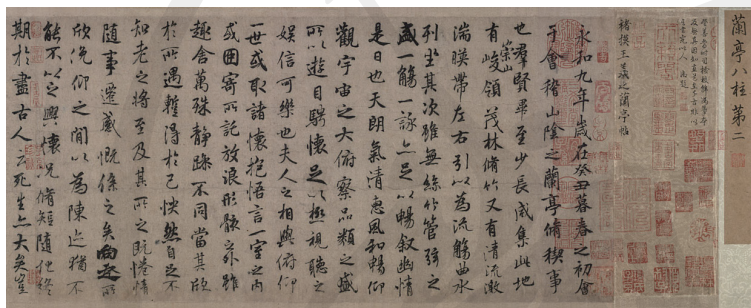 蘭亭八柱第二
褚摸王羲之蘭亭帖
永和九年歲在癸丑暮春之初會
于會稽山陰之蘭亭脩稧事
也羣賢畢至少長咸集此地
有崇山峻領茂林脩竹又有清流激
湍暎帶左右引以為流觴曲水
列坐其次雖無絲竹管弦之
盛一觴一詠亦足以暢叙幽情
是日也天朗氣清惠風和暢仰
觀宇宙之大俯察品類之盛
所以遊目騁懷足以極視聽之
娛信可樂也夫人之相與俯仰
一世或取諸懷抱悟言一室之內
或因寄所託放浪形骸之外雖
趣舍萬殊静躁不同當其欣
於所遇暫得於己怏然自足不
知老之將至及其所之既惓情
隨事遷感慨係之矣向之所
欣俛仰之間以為陳迹猶不
能不以之興懷況脩短隨化終
期於盡古人云死生亦大矣豈